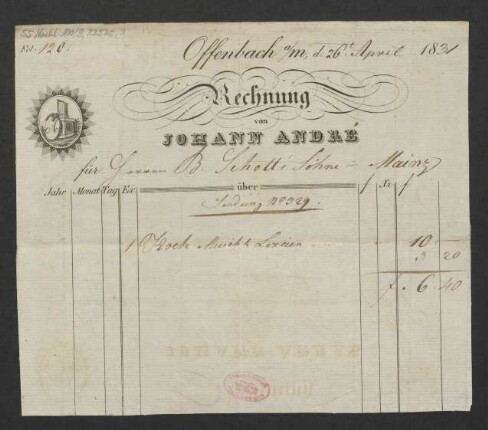 Nº 120.
Offenbach a/m, d. 26t April 1831
Rechnung
von
JOHANN ANDRÉ
für Herren B. Schott's Söhne in Mainz
Jahr Monat Tag Ex. über f Xr f
Sendung Nº 329.
1 Koch Musik Lexicon 10
3 20
f. 6 40